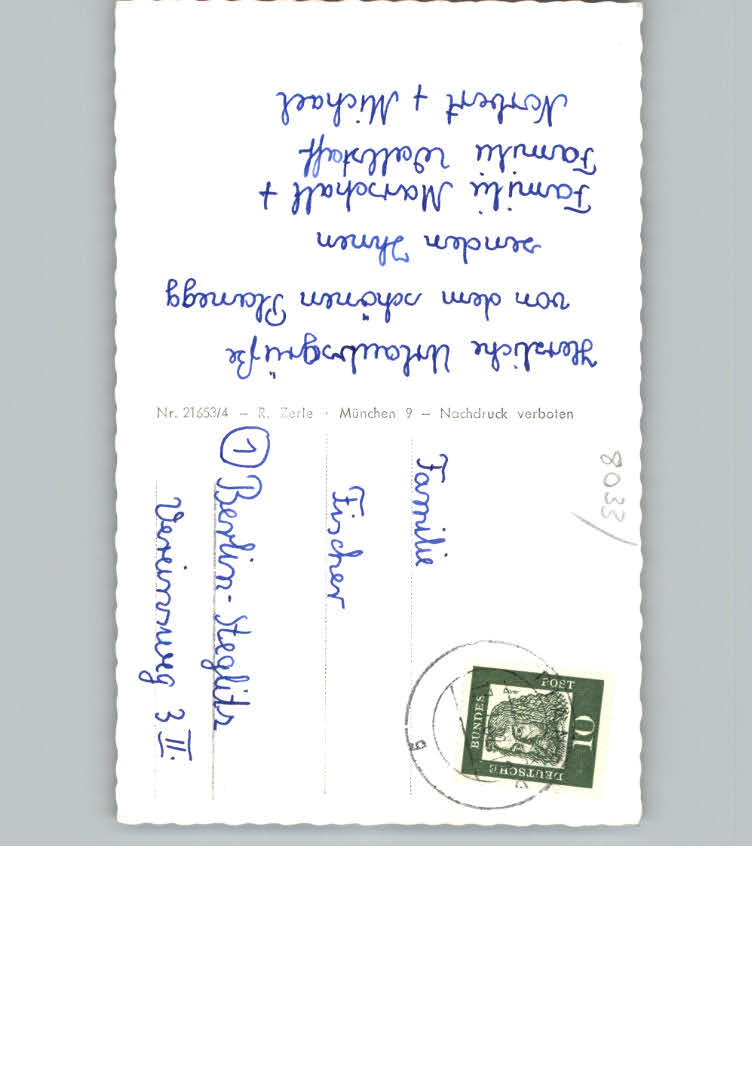 Herzliche Urlaubsgrüße
von dem schönen Planegg
senden Ihnen
Familie Marschall +
Familie Wallstaff
Norbert + Michael
Nr. 21653/4 – R. Zerle · München 9 – Nachdruck verboten
8033
Familie
Fischer
① Berlin-Steglitz
Vereinsweg 3 II.
DEUTSCHE
BUNDES
POST
10
g